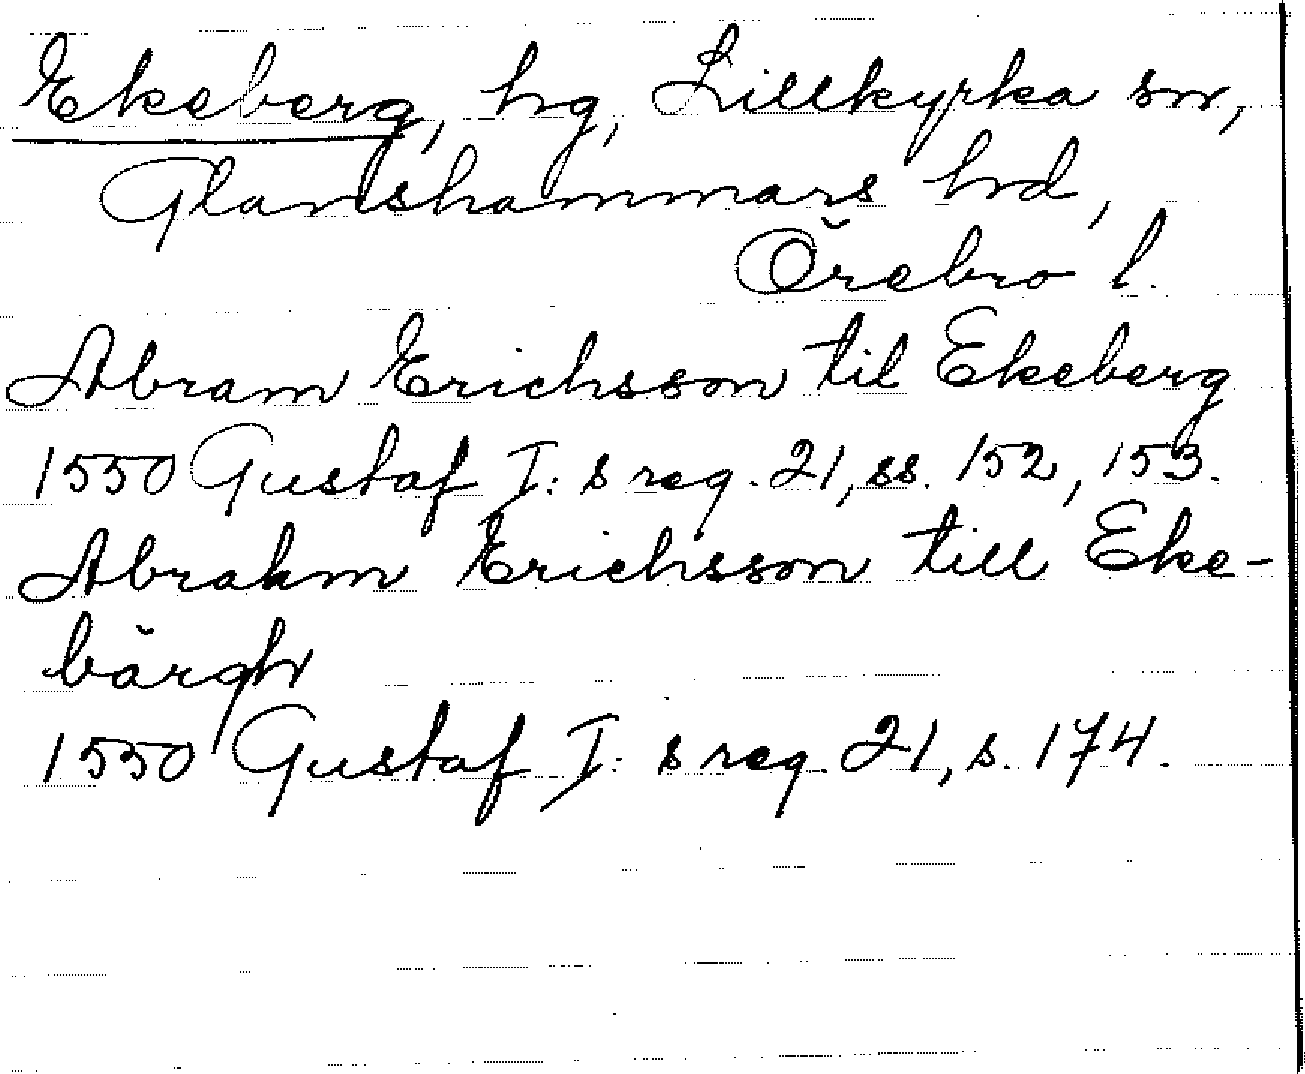 Ekeberg, hg, Lillkyrka sn,
Glanshammars hd,
Örebro l.
Abram Erichsson til Ekeberg
1550 Gustaf I:s reg. 21, ss. 152, 153.
Abrahm Erichsson till Eke-
bärgh
1550 Gustaf I:s reg. 21, s. 174.